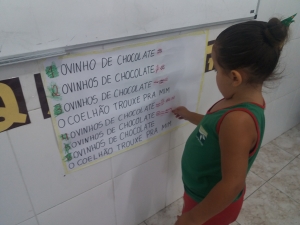 1 OVINHO DE CHOCOLATE
2 OVINHOS DE CHOCOLATE
3 OVINHOS DE CHOCOLATE
O COELHÃO TROUXE PRA MIM
4 OVINHOS DE CHOCOLATE
5 OVINHOS DE CHOCOLATE
6 OVINHOS DE CHOCOLATE
O COELHÃO TROUXE PRA MIM
Q